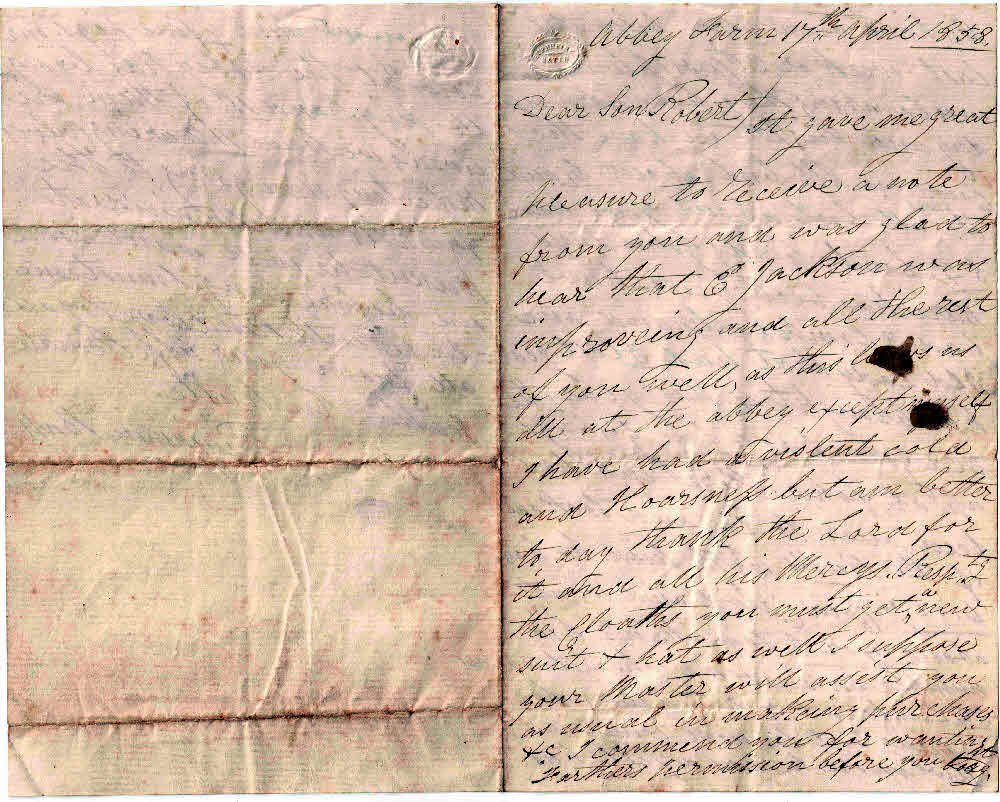 Abbey Farm 17th April 1858.
Dear Son Robert) It gave me great
pleasure to receive a note
from you and was glad to
hear that E Jackson was
improveing and all the rest
of you well, as this us
all at the abbey except myself
I have had a violent cold
and Hoarsness but am better
to day thank the Lord for
it and all his Mercys. Resp.tg
the Cloaths you must get a new
suit & hat as well I suppose
your Master will assist you
as usual in makeing purchases
&c I commend you for wanting
Farthers permission before you